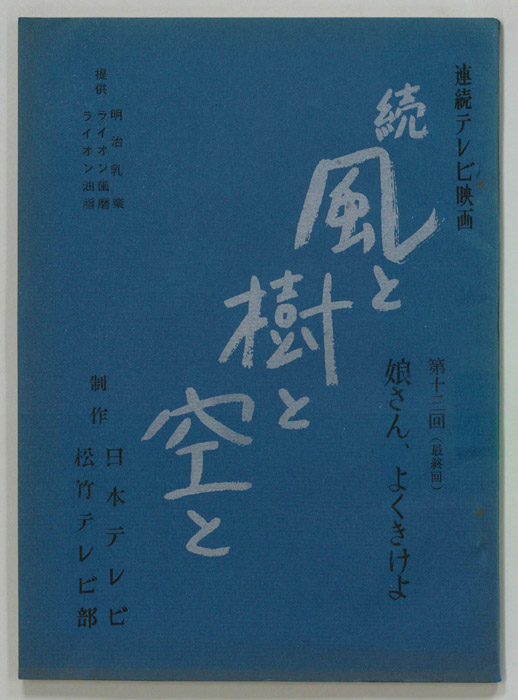 連続テレビ映画
続
風と
樹と
空と
第十三回(最終回)
娘さん、よくきけよ
提供
明治乳業
ライオン歯磨
ライオン油脂
制作
日本テレビ
松竹テレビ部